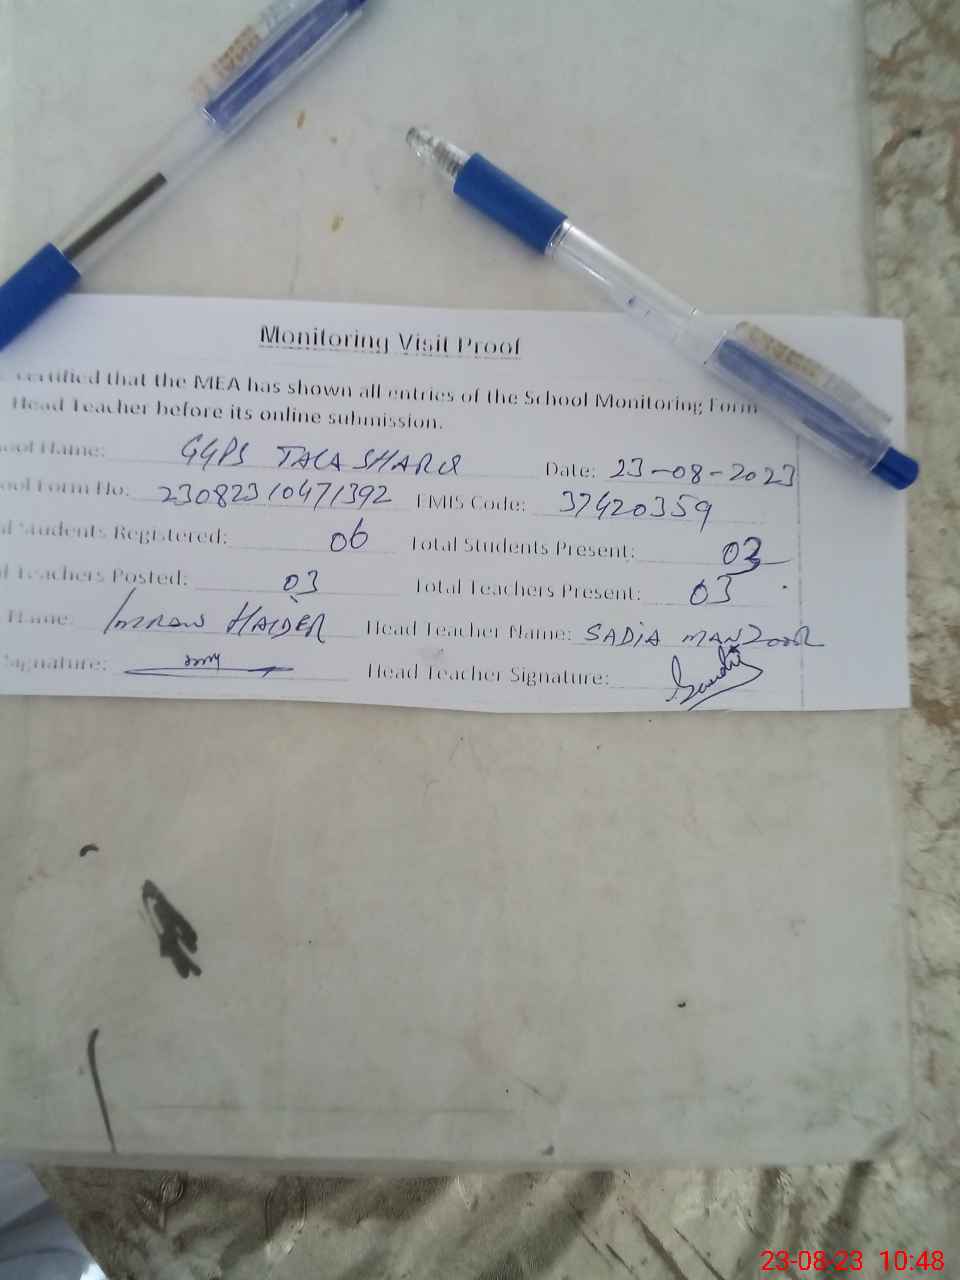 Monitoring Visit Proof
certified that the MEA has shown all entries of the School Monitoring Form
Head Teacher before its online submission.
ool Name: GGPS TALA SHARIF Date: 23-08-2023
ool Form No: 23082310471392 EMIS Code: 37420359
l Students Registered: 06 Total Students Present: 03
l Teachers Posted: 03 Total Teachers Present: 03
Name: Imran HAIDER Head Teacher Name: SADIA MANZOOR
Signature: Head Teacher Signature: Saadia
23-08-23 10:48